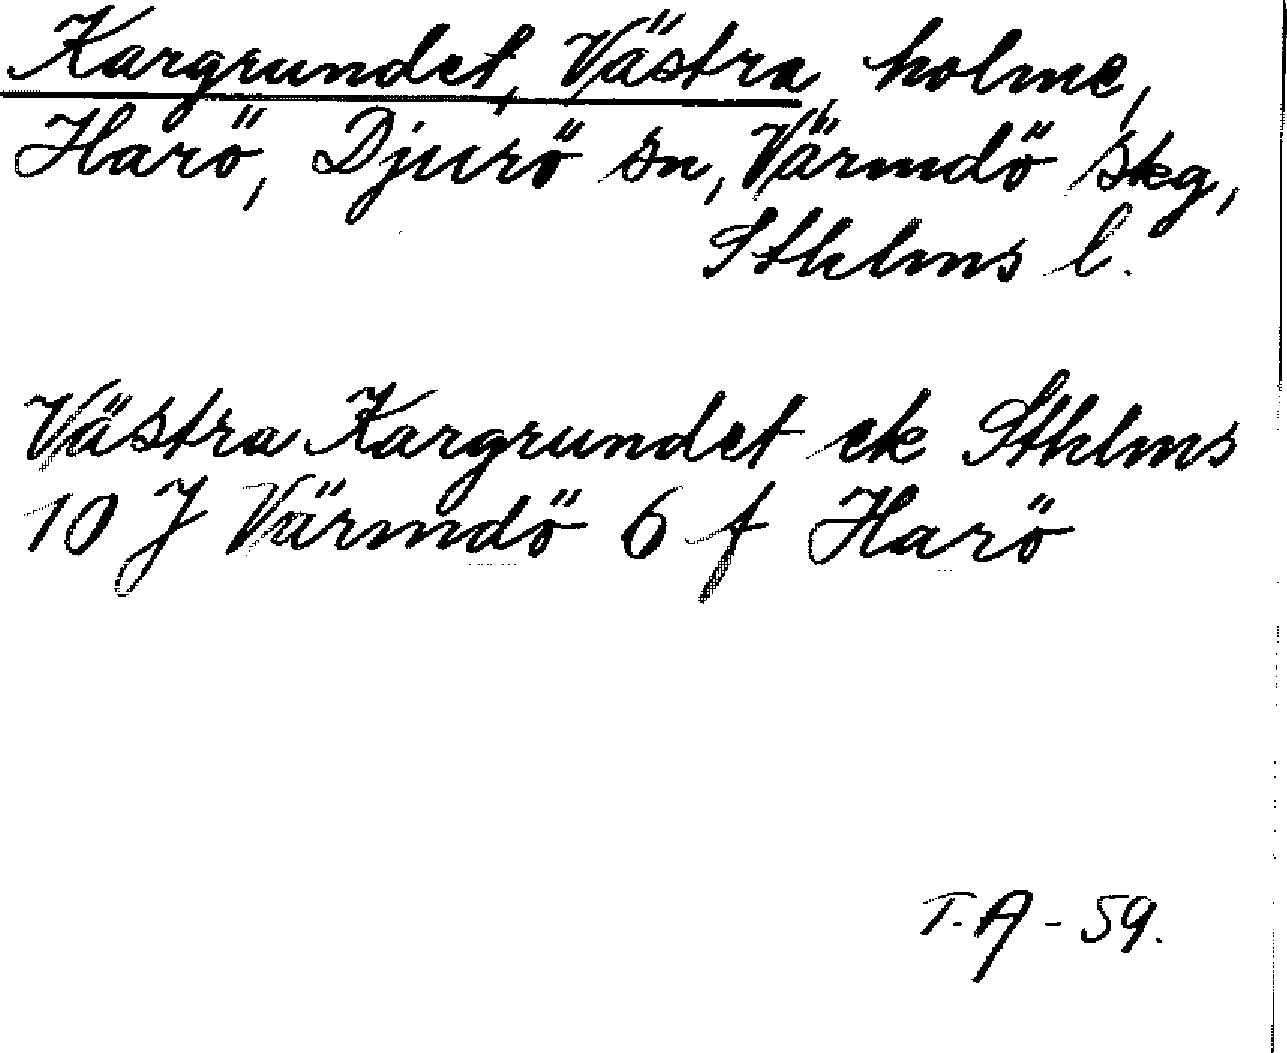 Kargrundet, Västra, holme,
Harö, Djurö sn, Värmdö skg,
Sthlms l.
Västra Kargrundet ek Sthlms
10 J Värmdö 6 f Harö
T.A - 59.